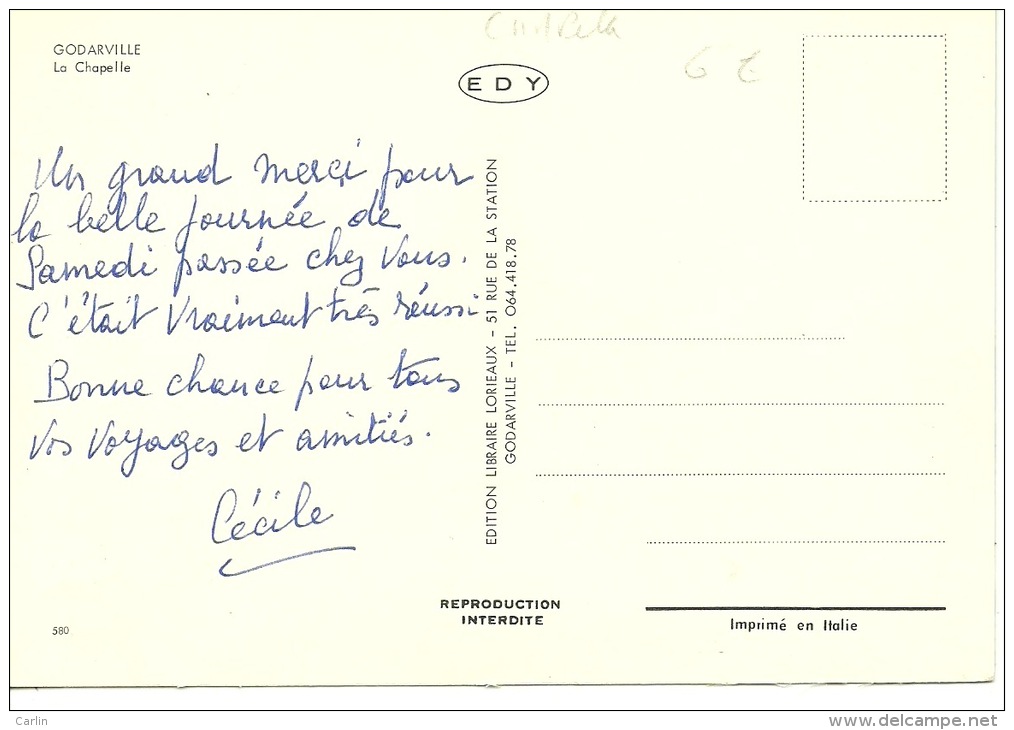 GODARVILLE
La Chapelle
EDY
6 €
Un grand merci pour
la belle journée de
Samedi passée chez Vous.
C'était Vraiment très réussi
Bonne chance pour tous
vos Voyages et amitiés.
Cécile
EDITION LIBRAIRE LORIEAUX - 51 RUE DE LA STATION
GODARVILLE - TEL. 064.418.78
REPRODUCTION
INTERDITE
580
Imprimé en Italie
Carlin
www.delcampe.net